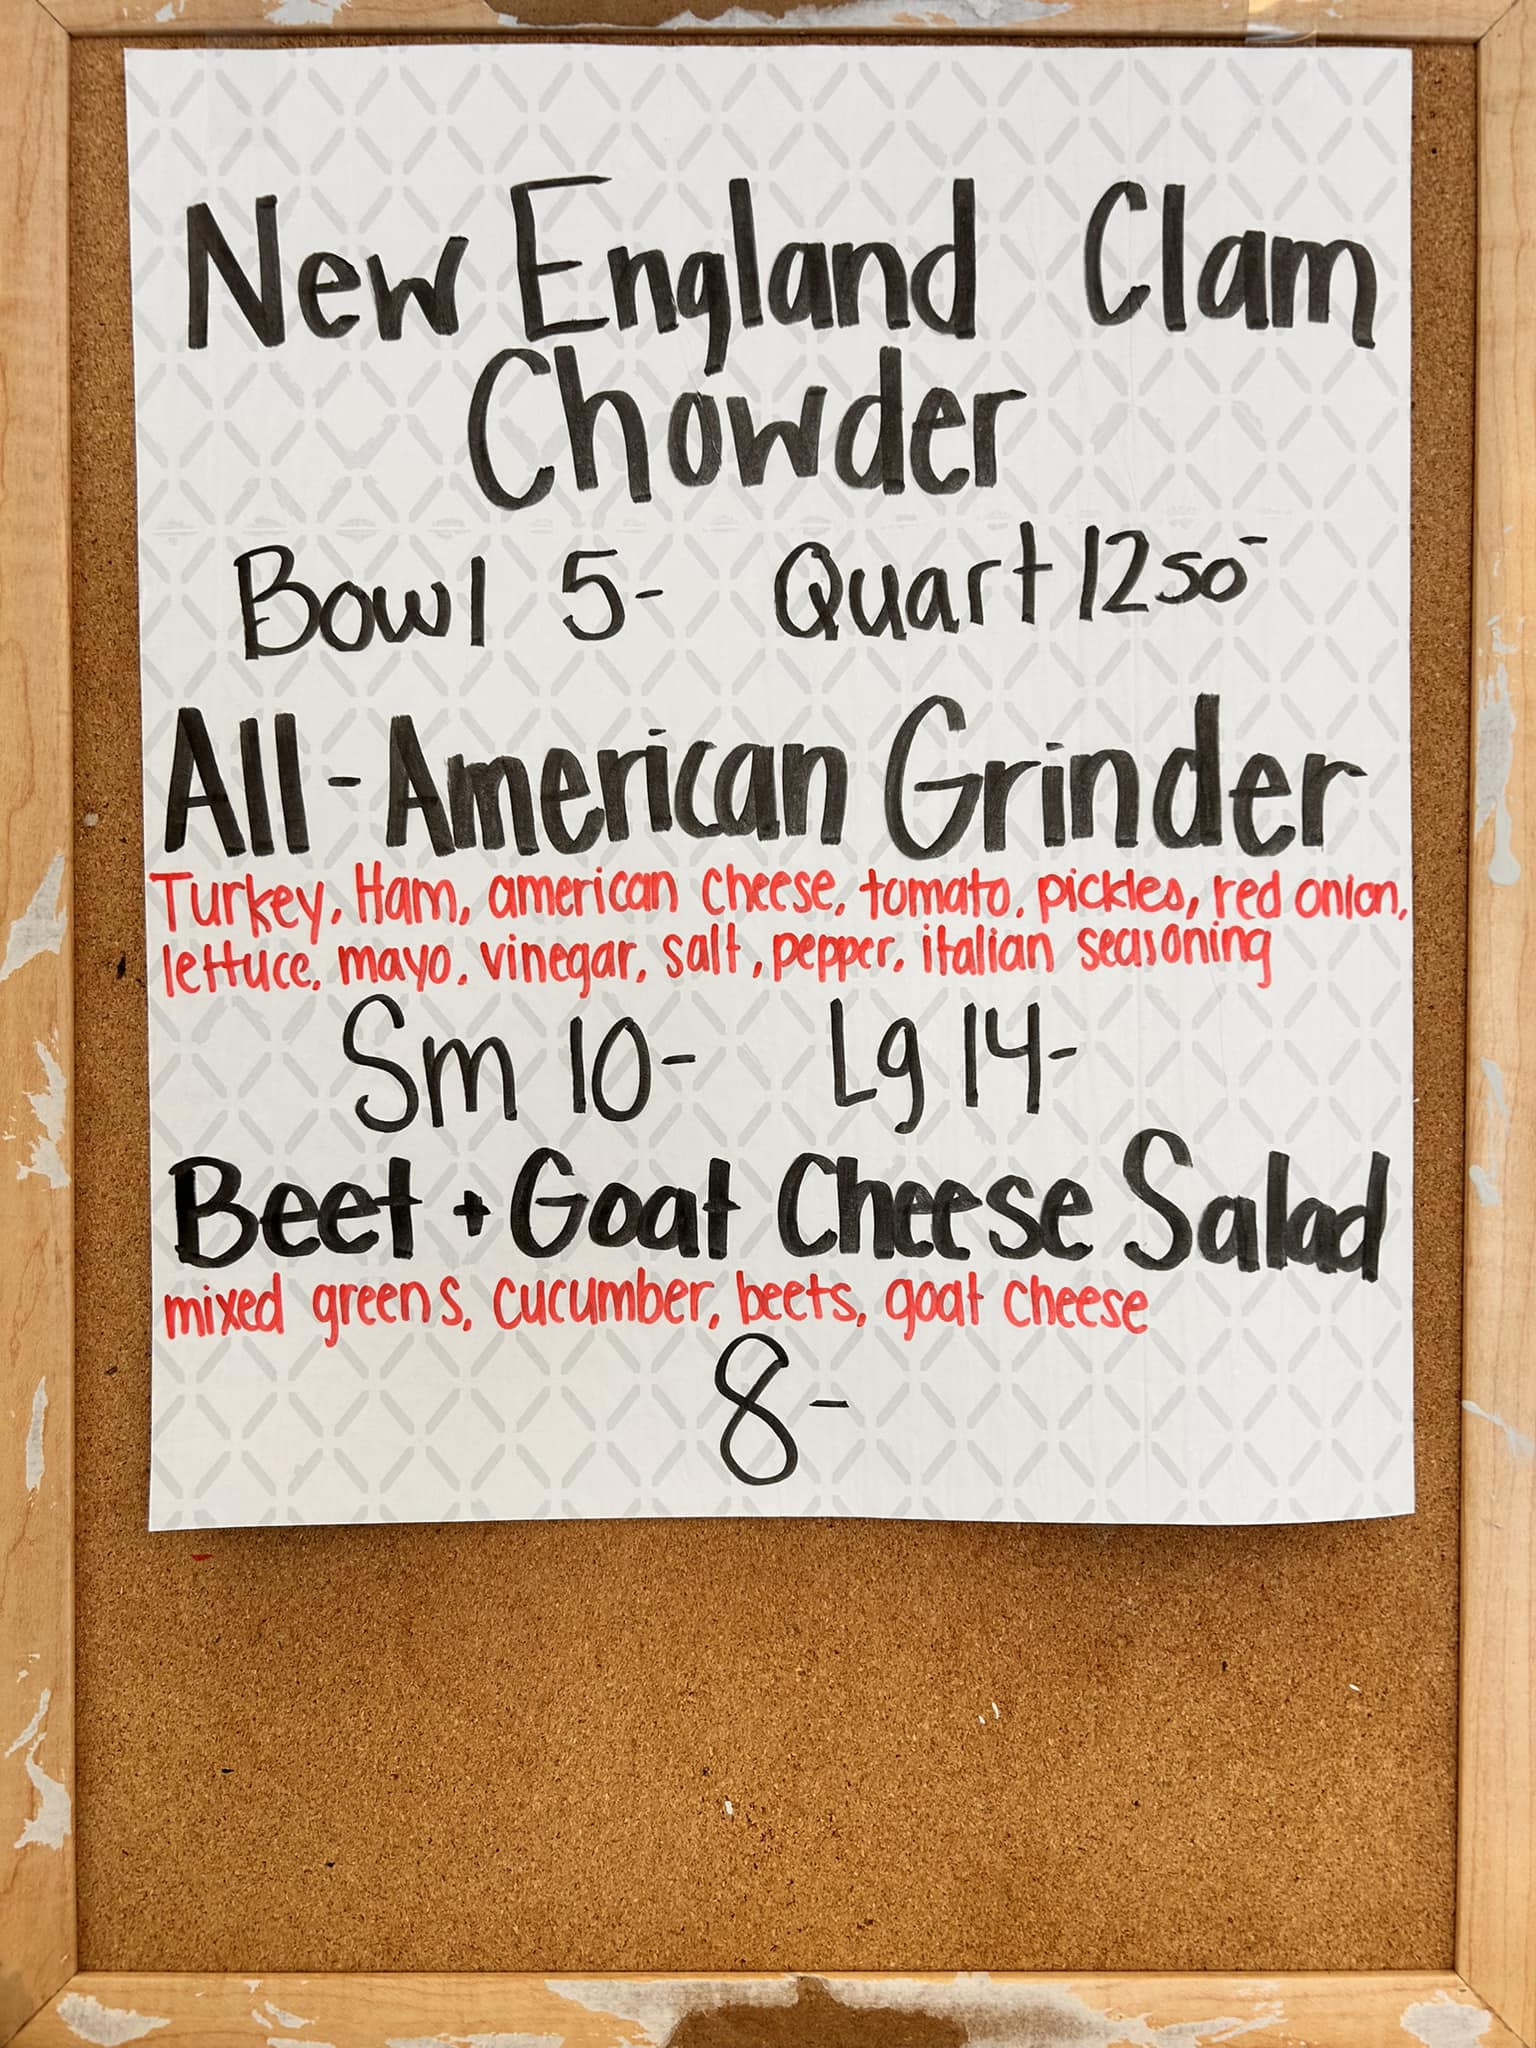 New England Clam
Chowder
Bowl 5- Quart 1250-
All-American Grinder
Turkey, Ham, american cheese, tomato, pickles, red onion,
lettuce, mayo, vinegar, salt, pepper, italian seasoning
Sm 10- Lg 14-
Beet + Goat Cheese Salad
mixed greens, cucumber, beets, goat cheese
8-